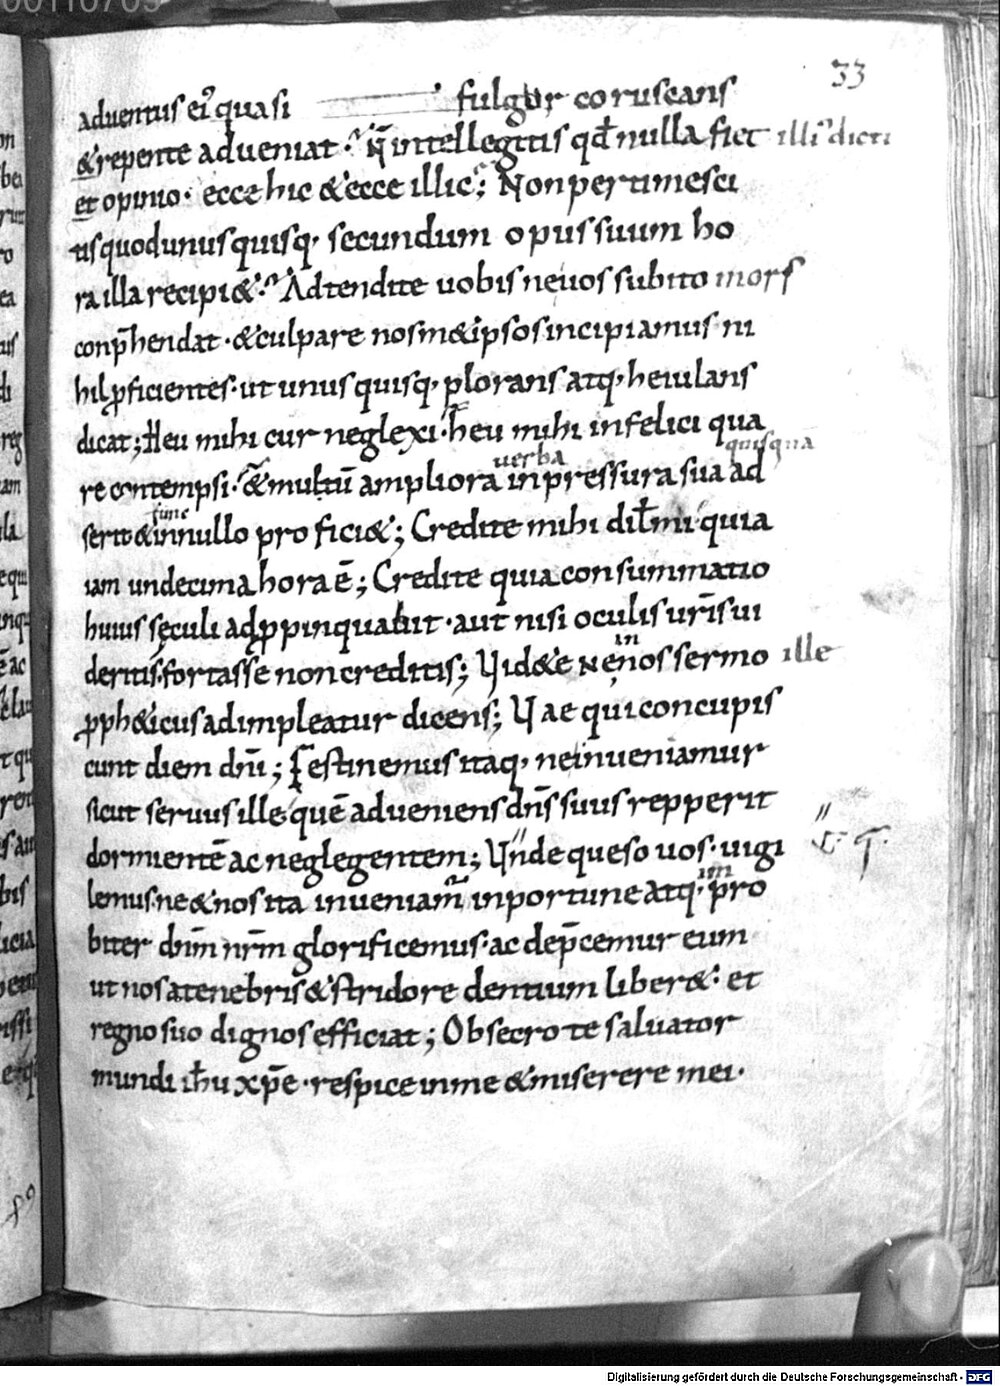 33
aduentus ei' quasi fulgur coruscans
& repente adueniat · n̄ intellegitis qd̄ nulla fiet illi' dicti
et opinio · ecce hic & ecce illic; Non pertimesci
tis quod unusquisq· secundum opus suum ho
ra illa recipi&· Adtendite uobis ne uos subito mors
conp̄hendat · & culpare nosm&ipsos incipiamus ni
hil ꝓficientes · ut unusquisq· plorans atq· heiulans
dicat; Heu mihi cur neglexi · heu mihi infelici qua
quisquā
re contempsi · & multū ampliora in pressura sua ad
uerba
serit & in nullo profici&; Credite mihi dil̄mi quia
iam undecima hora ē; Credite quia consummatio
huius sęculi adꝓpinquabit · aut nisi oculis ur̄is ui
deritis · fortasse non creditis; Uid&e ne in nos sermo ille
ꝓph&icus adimpleatur dicens; Uae qui concupis
cunt diem dn̄i; Festinemus itaq· ne inueniamur
sicut seruus ille quē adueniens dn̄s suus repperit
dormientē ac neglegentem; Unde queso uos · uigi
lemus · ne & nos ita inueniam̄ inportune atq· im pro
biter dn̄m nr̄m glorificemus · ac dep̄cemur eum
ut nos a tenebris & stridore dentium liber& · et
regno suo dignos efficiat; Obsecro te saluator
mundi ih̄u xp̄e · respice in me & miserere mei ·
Digitalisierung gefördert durch die Deutsche Forschungsgemeinschaft - DFG